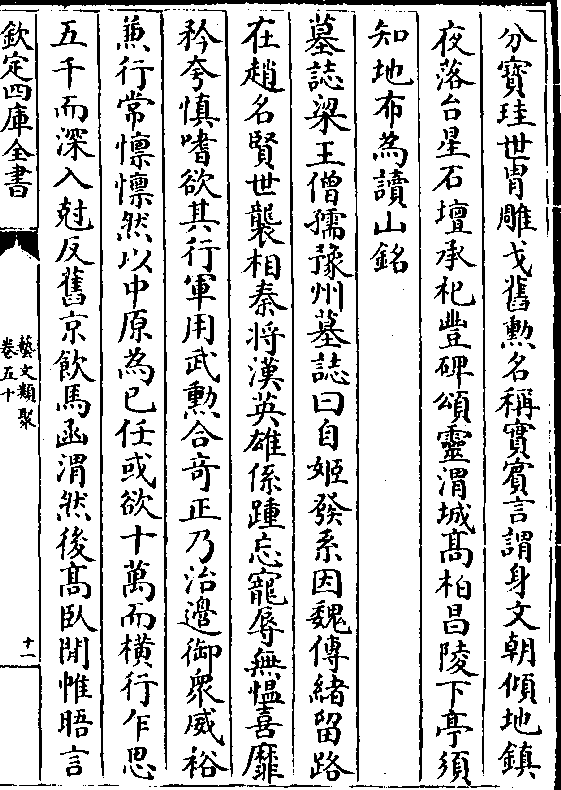 分寳珪世胄雕戈舊勲名稱實賓言謂身文朝傾地鎮
夜落台星石壇承祀豐碑頌靈渭城髙柏昌陵下亭須
知地布為讀山銘
墓誌梁王僧孺豫州墓誌曰自姬發系因魏傳緒留路
在趙名賢世襲相秦將漢英雄係踵忘寵辱無愠喜靡
矜夸慎嗜欲其行軍用武勲合竒正乃治邊御衆威裕
兼行常懔懔然以中原為已任或欲十萬而橫行乍思
五千而深入尅反舊京飲馬函渭然後髙臥閒帷晤言
欽定四庫全書
藝文類聚
卷五十
十一